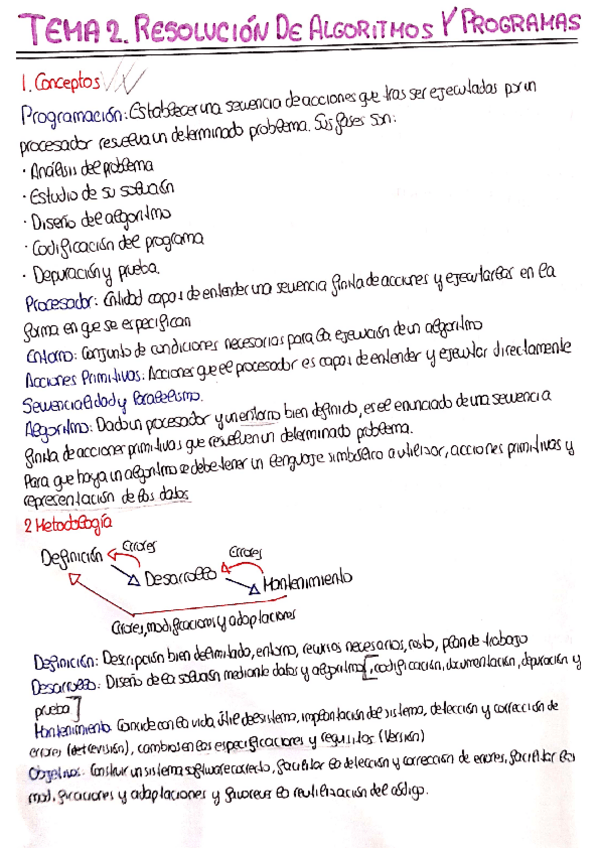 TEMA 2. RESOLUCIÓN DE ALGORITMOS Y PROGRAMAS
1. Conceptos
Programación: Establecer una secuencia de acciones que tras ser ejecutadas por un
procesador resuelva un determinado problema. Sus fases son:
· Análisis del problema
· Estudio de su solución
· Diseño del algoritmo
· Codificación del programa
· Depuración y prueba.
Procesador: Entidad capaz de entender una secuencia finita de acciones y ejecutarlas en la
forma en que se especifican
Entorno: Conjunto de condiciones necesarias para la ejecución de un algoritmo
Acciones Primitivas: Acciones que el procesador es capaz de entender y ejecutar directamente
Secuencialidad y Paralelismo.
Algoritmo: Dado un procesador y un entorno bien definido, es el enunciado de una secuencia
finita de acciones primitivas que resuelven un determinado problema.
Para que haya un algoritmo se debe tener un lenguaje simbólico a utilizar, acciones primitivas y
representación de los datos
2 Metodología
Definición Errores
Desarrollo Errores
Mantenimiento
Errores, modificaciones y adaptaciones
Definición: Descripción bien delimitado, entorno, recursos necesarios, costo, plan de trabajo
Desarrollo: Diseño de la solución mediante datos y algoritmo [, codificación, documentación, depuración y
prueba]
Mantenimiento: Coincide con la vida útil del sistema, implantación del sistema, detección y corrección de
errores (revisión), cambios en las especificaciones y requisitos (Versión)
Objetivos: Construir un sistema software correcto, facilitar la detección y corrección de errores, facilitar las
modificaciones y adaptaciones y favorecer la reutilización del código.